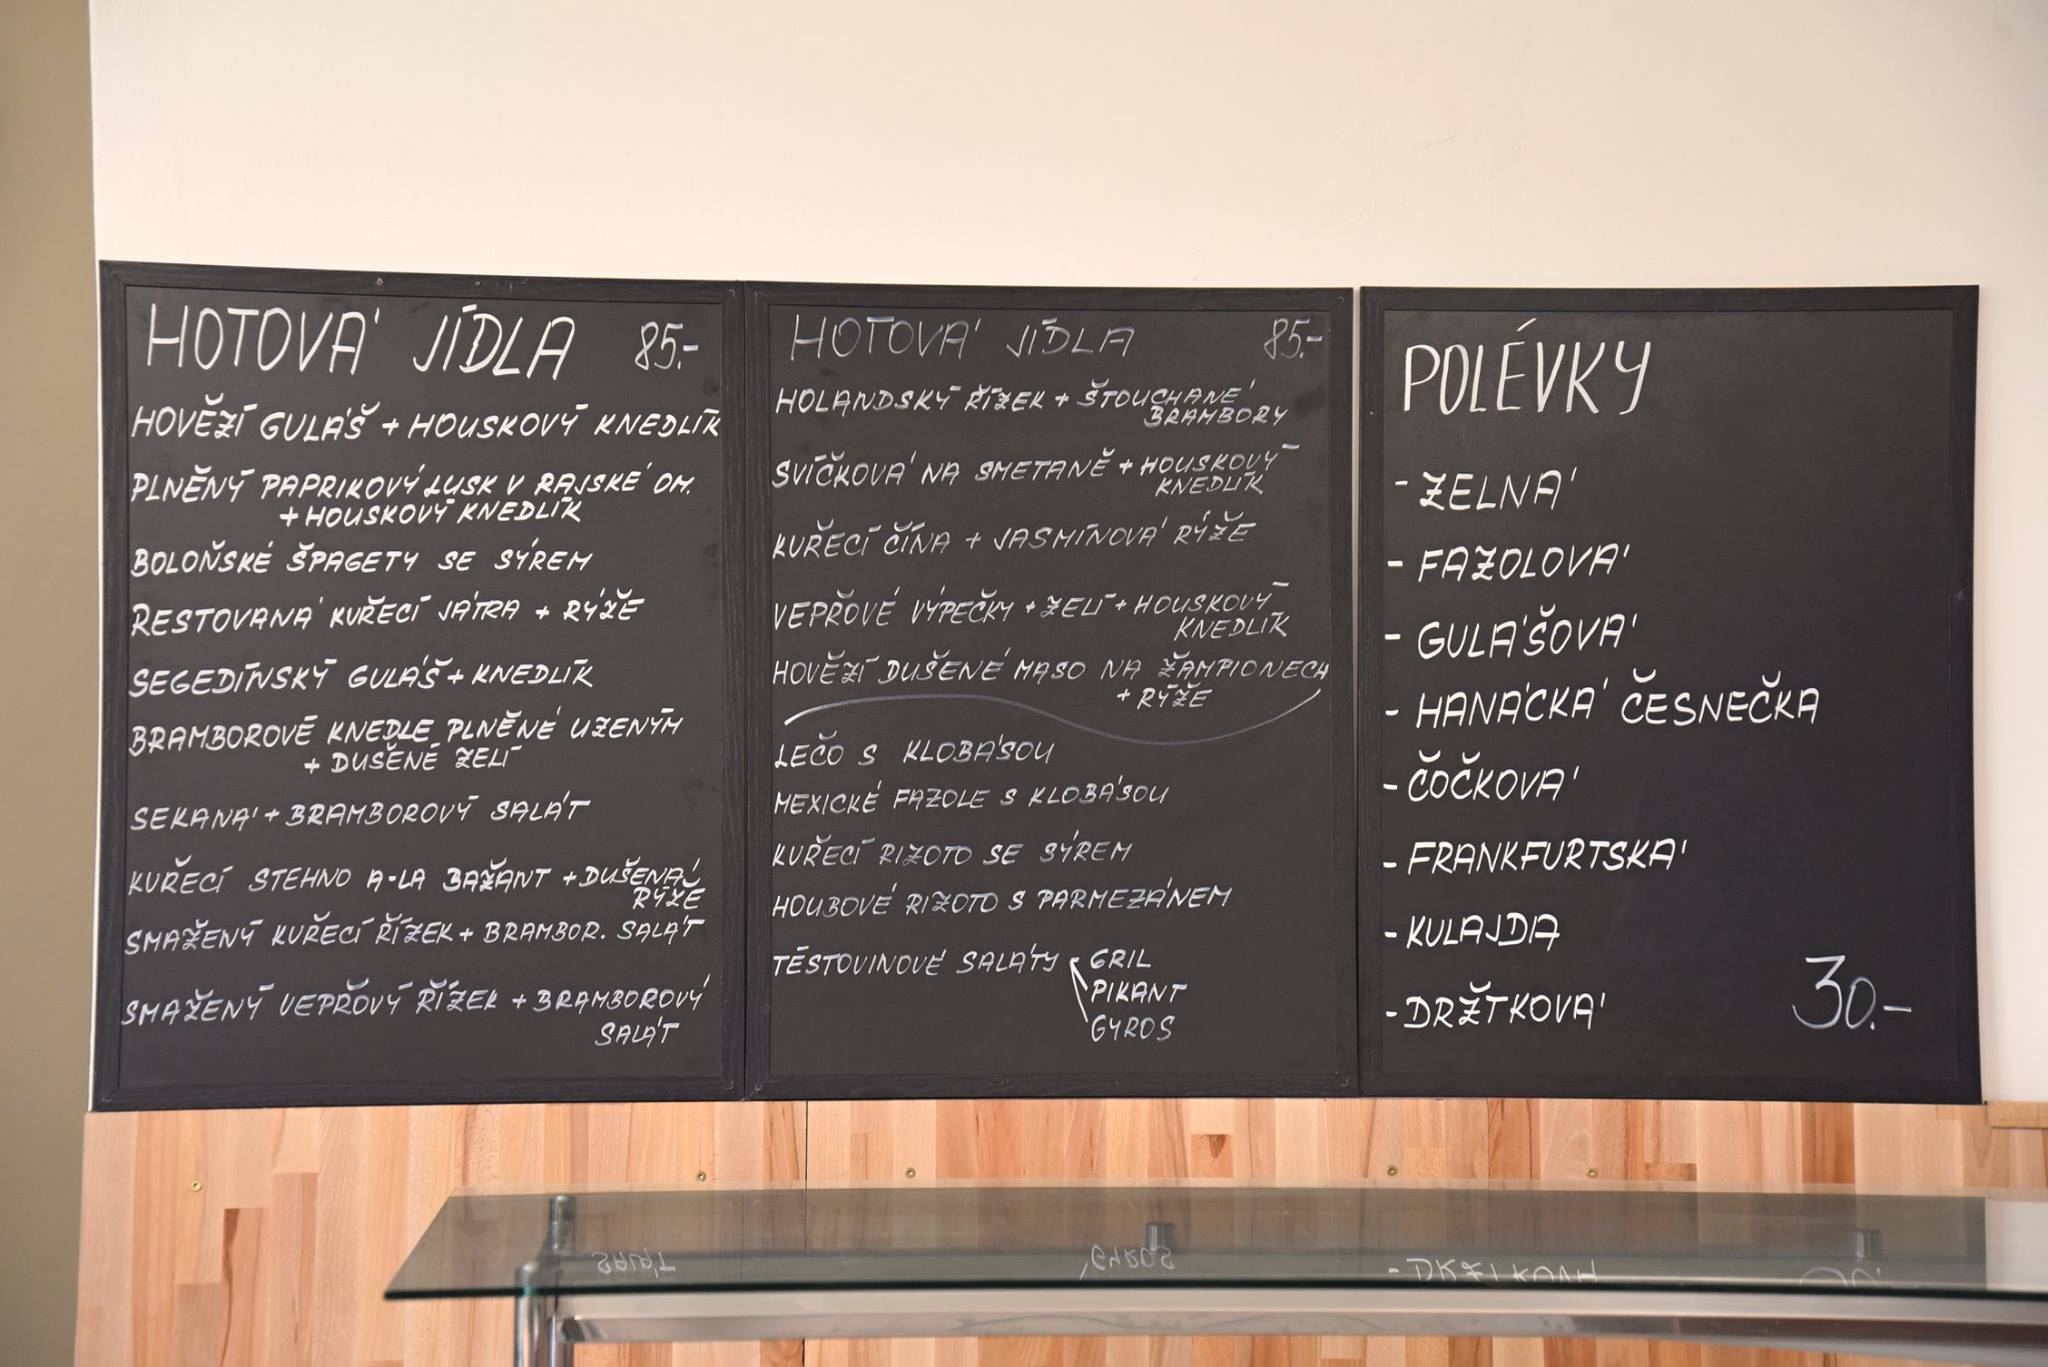 HOTOVÁ JÍDLA 85.-
HOVĚZÍ GULÁŠ + HOUSKOVÝ KNEDLÍK
PLNĚNÝ PAPRIKOVÝ LUSK V RAJSKÉ OM.
+ HOUSKOVÝ KNEDLÍK
BOLOŇSKÉ ŠPAGETY SE SÝREM
RESTOVANÁ KUŘECÍ JÁTRA + RÝŽE
SEGEDÍNSKÝ GULÁŠ + KNEDLÍK
BRAMBOROVÉ KNEDLE PLNĚNÉ UZENÝM
+ DUŠENÉ ZELÍ
SEKANÁ + BRAMBOROVÝ SALÁT
KUŘECÍ STEHNO A-LA BAŽANT + DUŠENÁ
RÝŽE
SMAŽENÝ KUŘECÍ ŘÍZEK + BRAMBOR. SALÁT
SMAŽENÝ VEPŘOVÝ ŘÍZEK + BRAMBOROVÝ
SALÁT
HOTOVÁ JÍDLA 85.-
HOLANDSKÝ ŘÍZEK + ŠTOUCHANÉ
BRAMBORY
SVÍČKOVÁ NA SMETANĚ + HOUSKOVÝ
KNEDLÍK
KUŘECÍ ČÍNA + JASMÍNOVÁ RÝŽE
VEPŘOVÉ VÝPEČKY + ZELÍ + HOUSKOVÝ
KNEDLÍK
HOVĚZÍ DUŠENÉ MASO NA ŽAMPIONECH
+ RÝŽE
LEČO S KLOBÁSOU
MEXICKÉ FAZOLE S KLOBÁSOU
KUŘECÍ RIZOTO SE SÝREM
HOUBOVÉ RIZOTO S PARMEZÁNEM
TĚSTOVINOVÉ SALÁTY - GRIL
PIKANT
GYROS
POLÉVKY
- ZELNÁ
- FAZOLOVÁ
- GULÁŠOVÁ
- HANÁCKÁ ČESNEČKA
- ČOČKOVÁ
- FRANKFURTSKÁ
- KULAJDA
- DRŽTKOVÁ
30.-